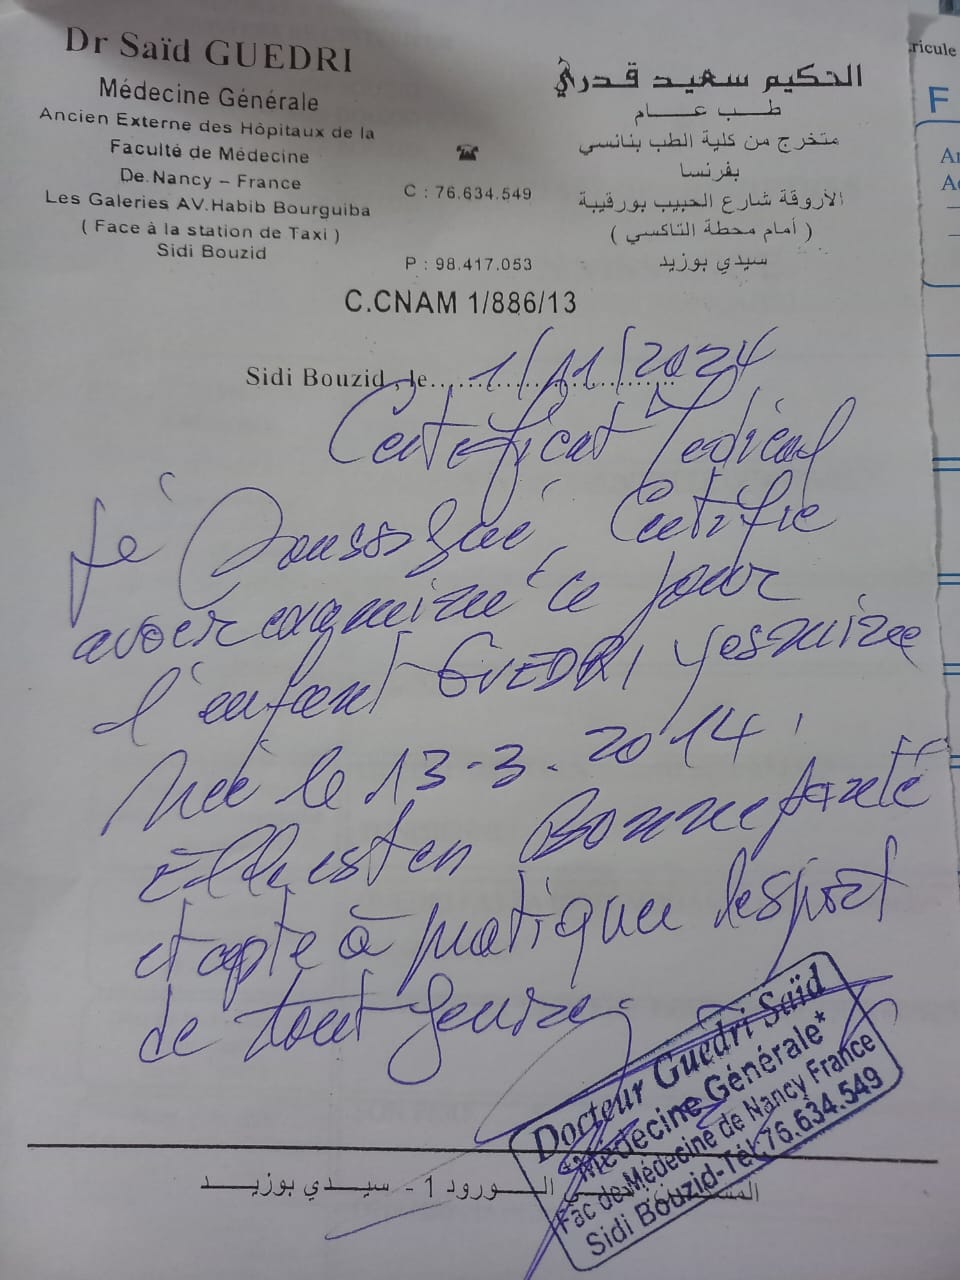 Dr Saïd GUEDRI
Médecine Générale
Ancien Externe des Hôpitaux de la
Faculté de Médecine
De.Nancy – France
Les Galeries AV.Habib Bourguiba
( Face à la station de Taxi )
Sidi Bouzid
C : 76.634.549
P : 98.417.053
الحكيم سعيد قدري
طب عام
متخرج من كلية الطب بنانسي
بفرنسا
الأروقة شارع الحبيب بورقيبة
( أمام محطة التاكسي )
سيدي بوزيد
C.CNAM 1/886/13
Sidi Bouzid, le 1/11/2024
Certificat Médical
Je Soussigné, Certifie
avoir examiné ce jour
l'enfant GUEDRI Yesmine
Née le 13-3-2014,
Elle est en Bonne santé
et apte à pratiquer le sport
de tout genre.
Docteur Guedri Saïd
Médecine Générale*
Fac de Médecine de Nancy France
Sidi Bouzid-Tél:76.634.549
الورود 1 - سيدي بوزيد
ricule
F